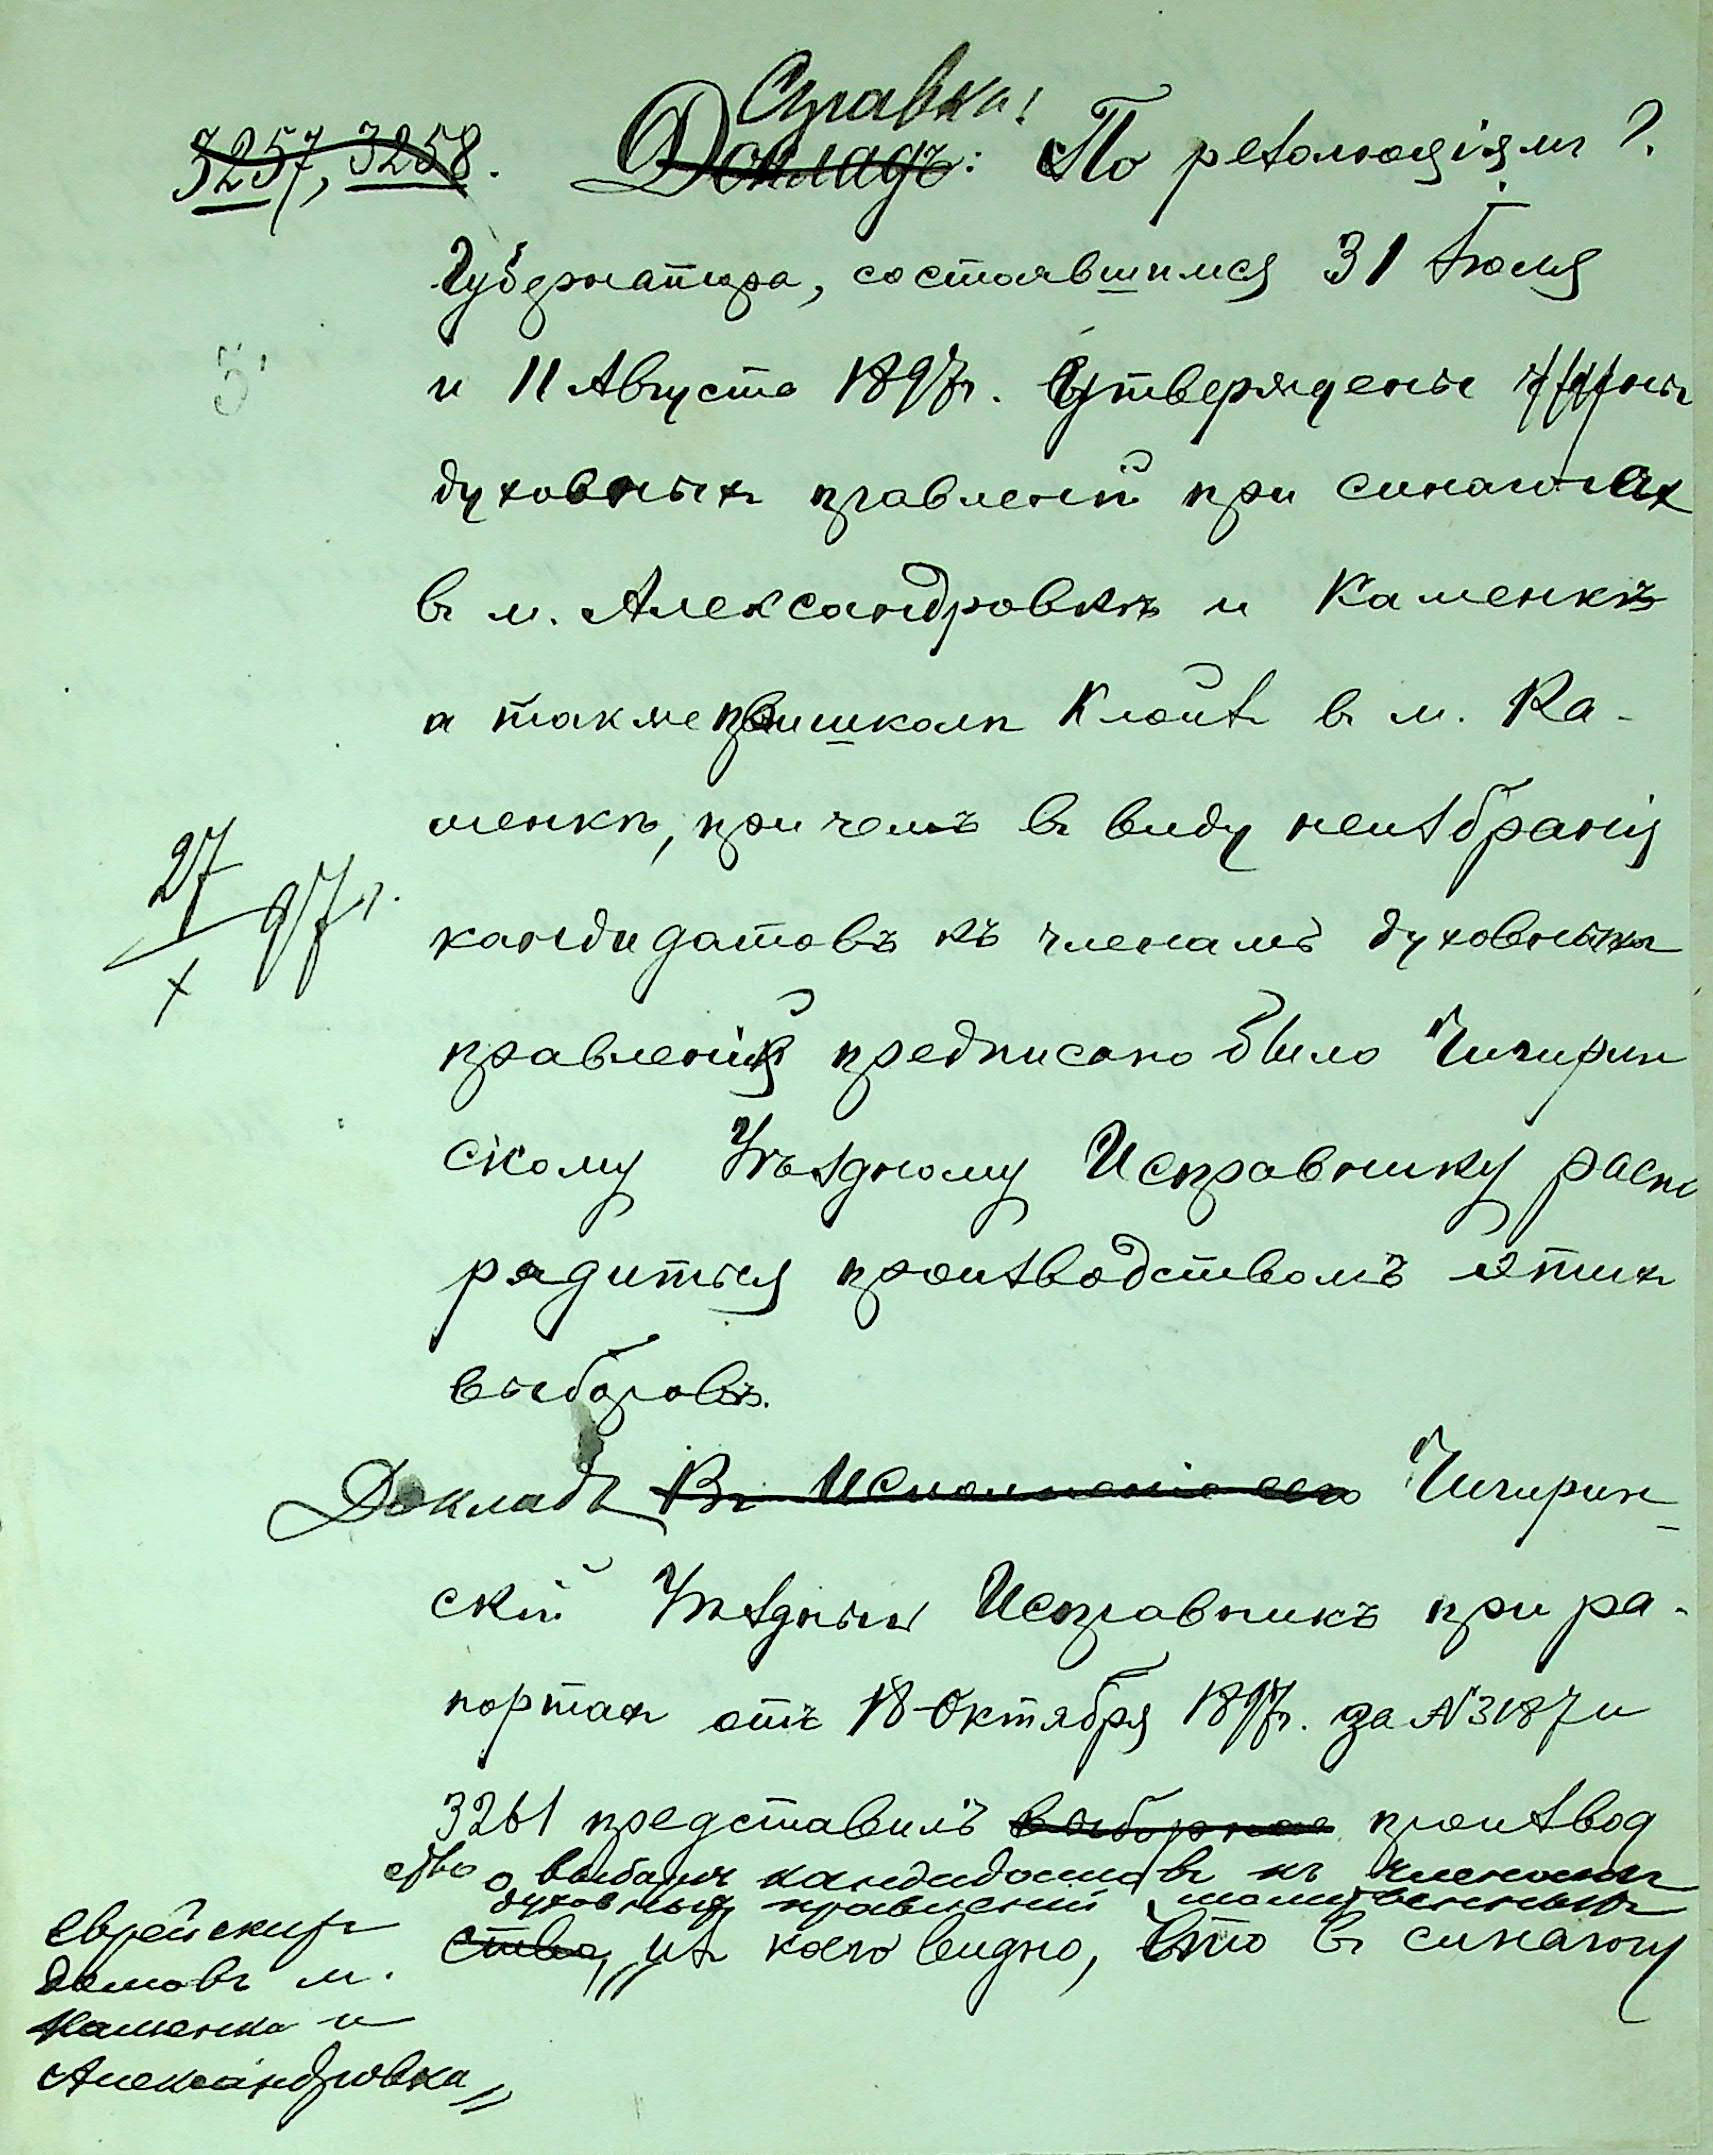 Справка:
3257, 3258. Докладъ: По резолюціямъ Г.
Губернатора, состоявшимся 31 Іюля
и 11 Августа 1897 г. утверждены члены
духовныхъ правленій при синагогах
въ м. Александровкѣ и Каменкѣ
5.
а также при школѣ Клойзъ въ м. Ка-
менкѣ, при чемъ въ виду неизбранія
27/X 97 г.
кандидатовъ къ членамъ духовныхъ
правленій предписано было Чигирин
скому Уѣздному Исправнику распо
рядиться производствомъ этихъ
выборовъ.
Докладъ Во исполненіе сего Чигирин-
скій Уѣздный Исправникъ при ра-
портахъ отъ 18 Октября 1897 г. за № 3187 и
3261 представилъ выборное производ
ство о выборѣ кандидатовъ къ членамъ
духовныхъ правленій молитвенныхъ
ства, изъ коего видно, что въ синагогу
еврейскихъ
домовъ м.
Каменка и
Александровка